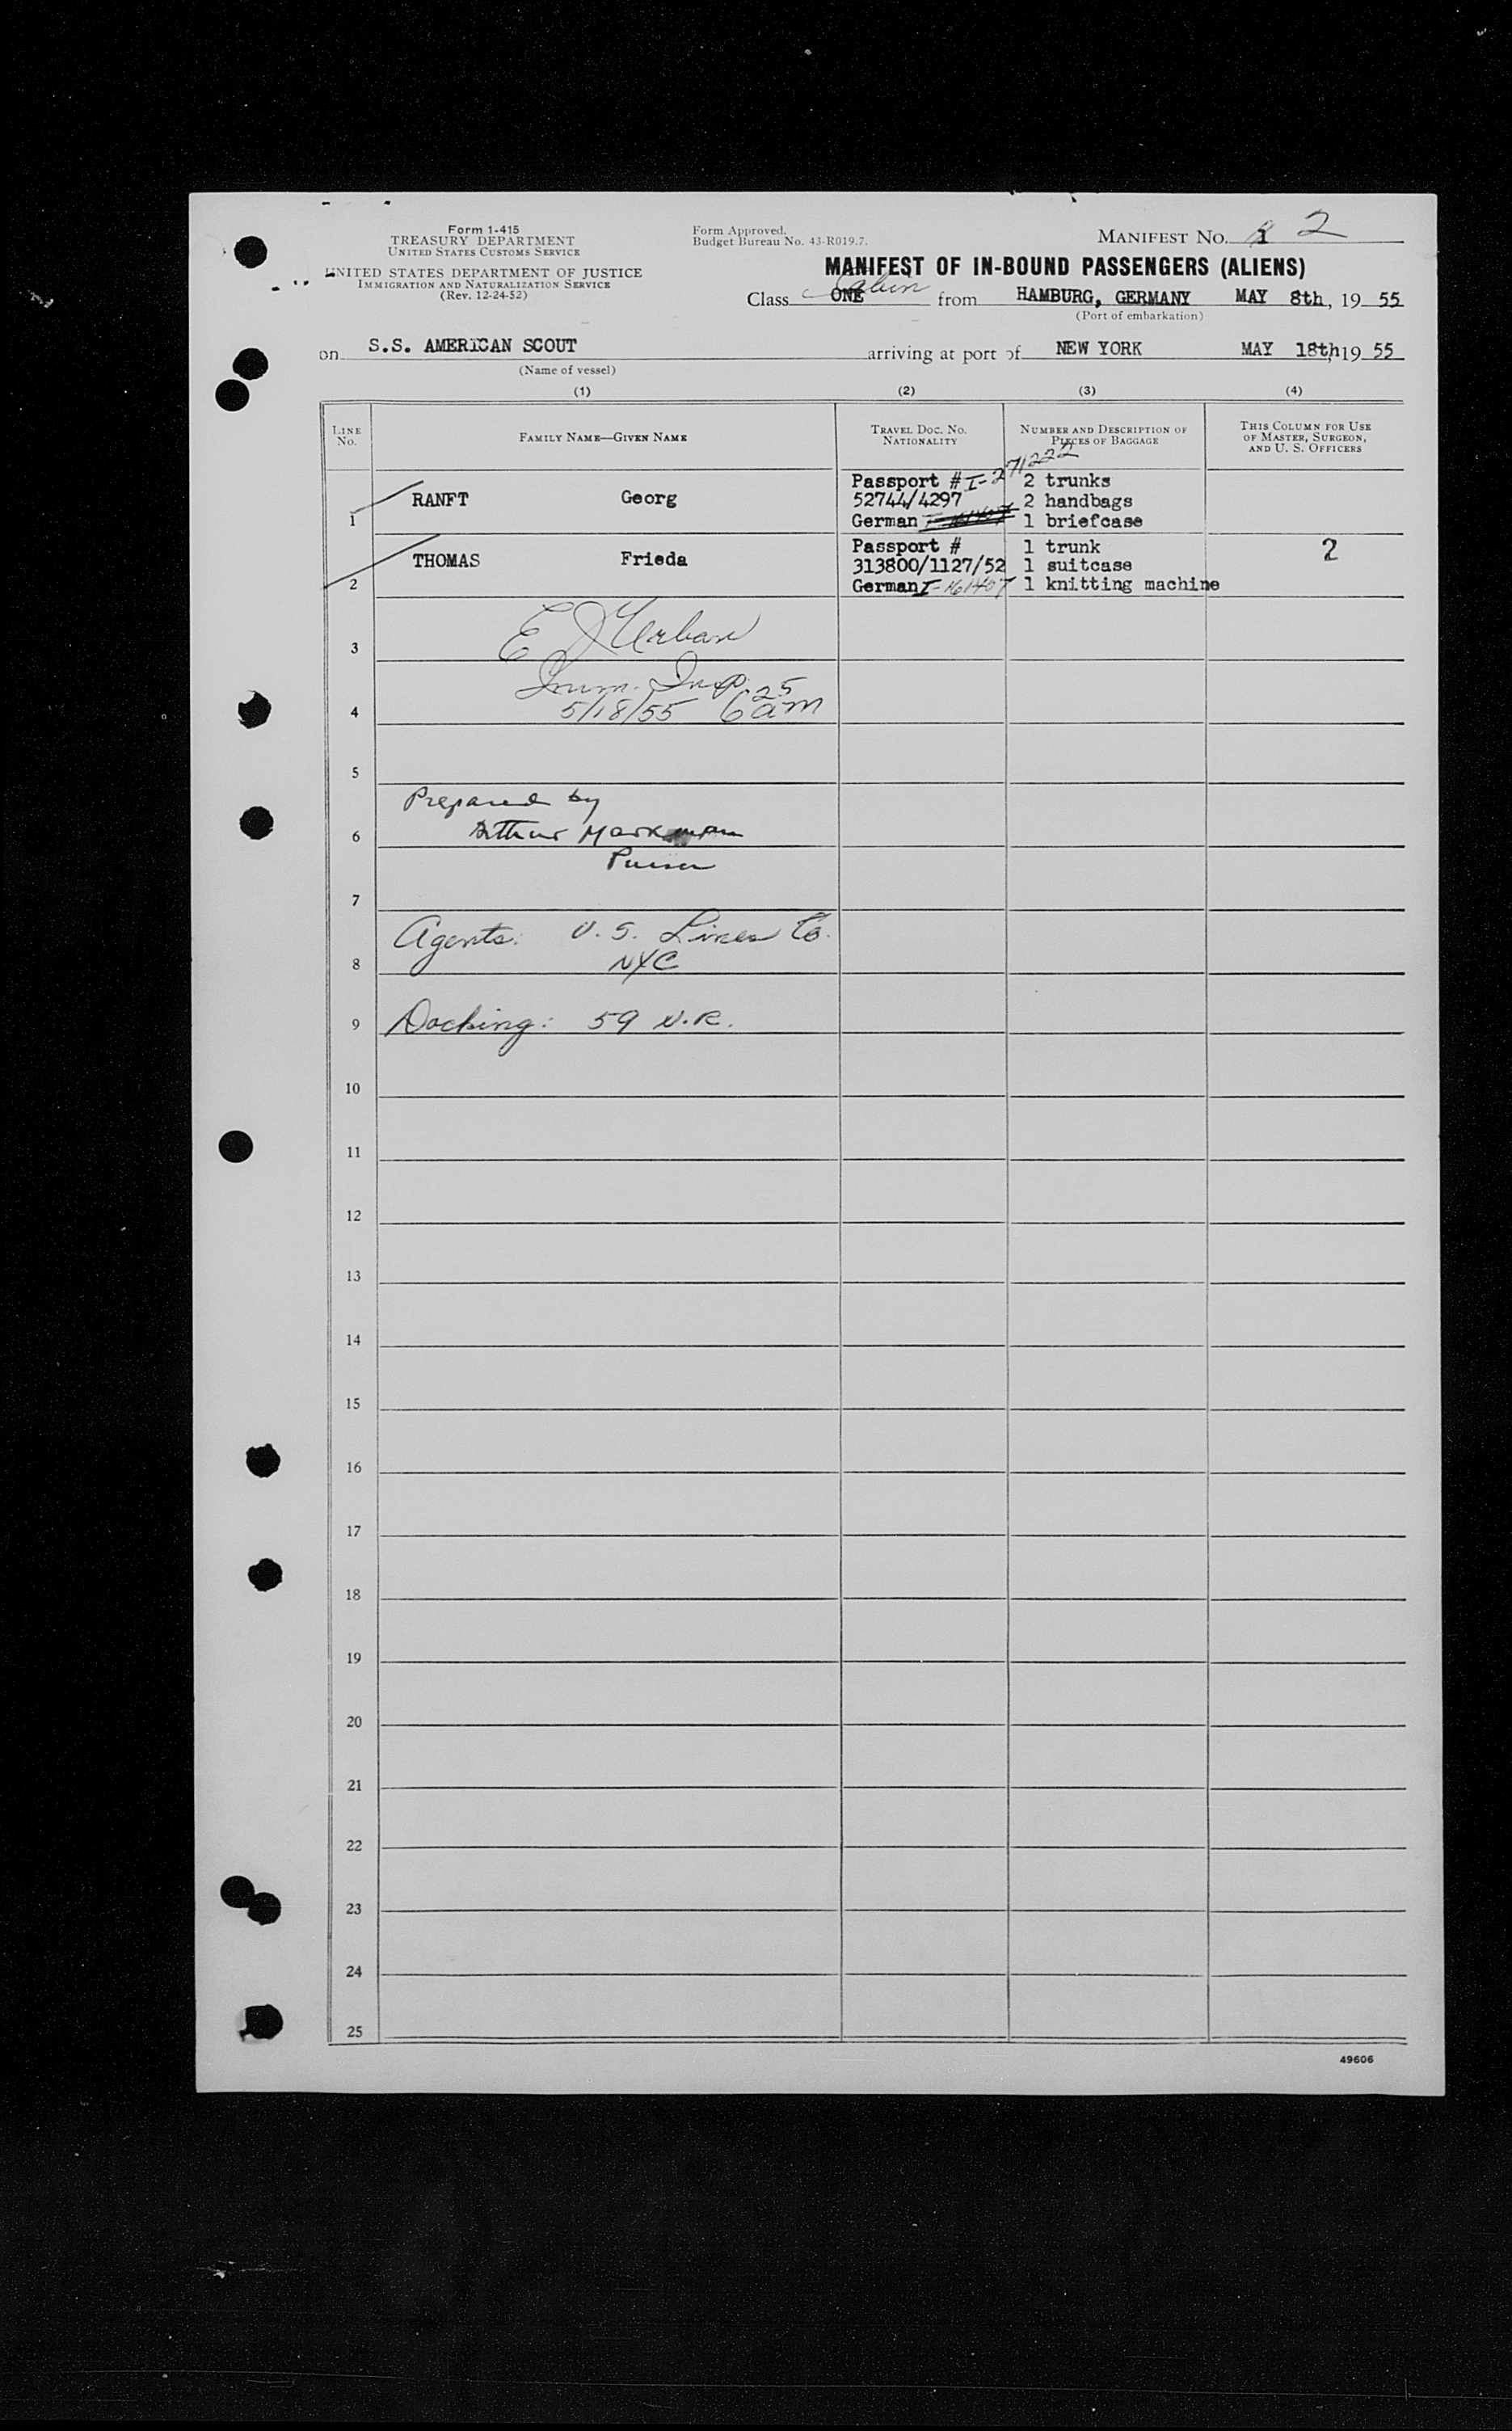 Form I-415
TREASURY DEPARTMENT
UNITED STATES CUSTOMS SERVICE
UNITED STATES DEPARTMENT OF JUSTICE
IMMIGRATION AND NATURALIZATION SERVICE
(Rev. 12-24-52)
Form Approved.
Budget Bureau No. 43-R019.7.
MANIFEST NO. 1 2
MANIFEST OF IN-BOUND PASSENGERS (ALIENS)
Class ONE Cabin from HAMBURG, GERMANY MAY 8th, 19 55
(Port of embarkation)
on S.S. AMERICAN SCOUT arriving at port of NEW YORK MAY 18th, 19 55
(Name of vessel)
(1) (2) (3) (4)
LINE No. FAMILY NAME—GIVEN NAME TRAVEL DOC. NO. NATIONALITY NUMBER AND DESCRIPTION OF PIECES OF BAGGAGE THIS COLUMN FOR USE OF MASTER, SURGEON, AND U. S. OFFICERS
1 RANFT Georg Passport # I-271222 52744/4297 German 2 trunks 2 handbags 1 briefcase
2 THOMAS Frieda Passport # 313800/1127/52 German I-161407 1 trunk 1 suitcase 1 knitting machine 2
3 E J Urban
4 Imm. Insp.
5/18/55 6 25 am
5
Prepared by
6 Arthur Markman
Purser
7
Agents: U. S. Lines Co.
8 NYC
9 Docking: 59 N.R.
10
11
12
13
14
15
16
17
18
19
20
21
22
23
24
25
49606